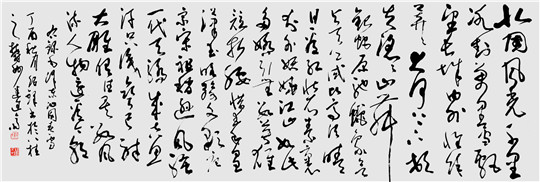 北国风光千里
冰封万里雪飘
望长城内外惟余
莽莽大河上下顿
失滔滔山舞
银蛇原驰蜡象欲
与天公试比高须晴
日看红装素裹
分外妖娆江山如此
多娇引无数英雄
竞折腰惜秦皇
汉武略输文采唐
宗宋祖稍逊风骚
一代天骄成吉思
汗只识弯弓射
大雕俱往矣数风
流人物还看今朝
沁园春雪
丁酉秋月书于八桂
之